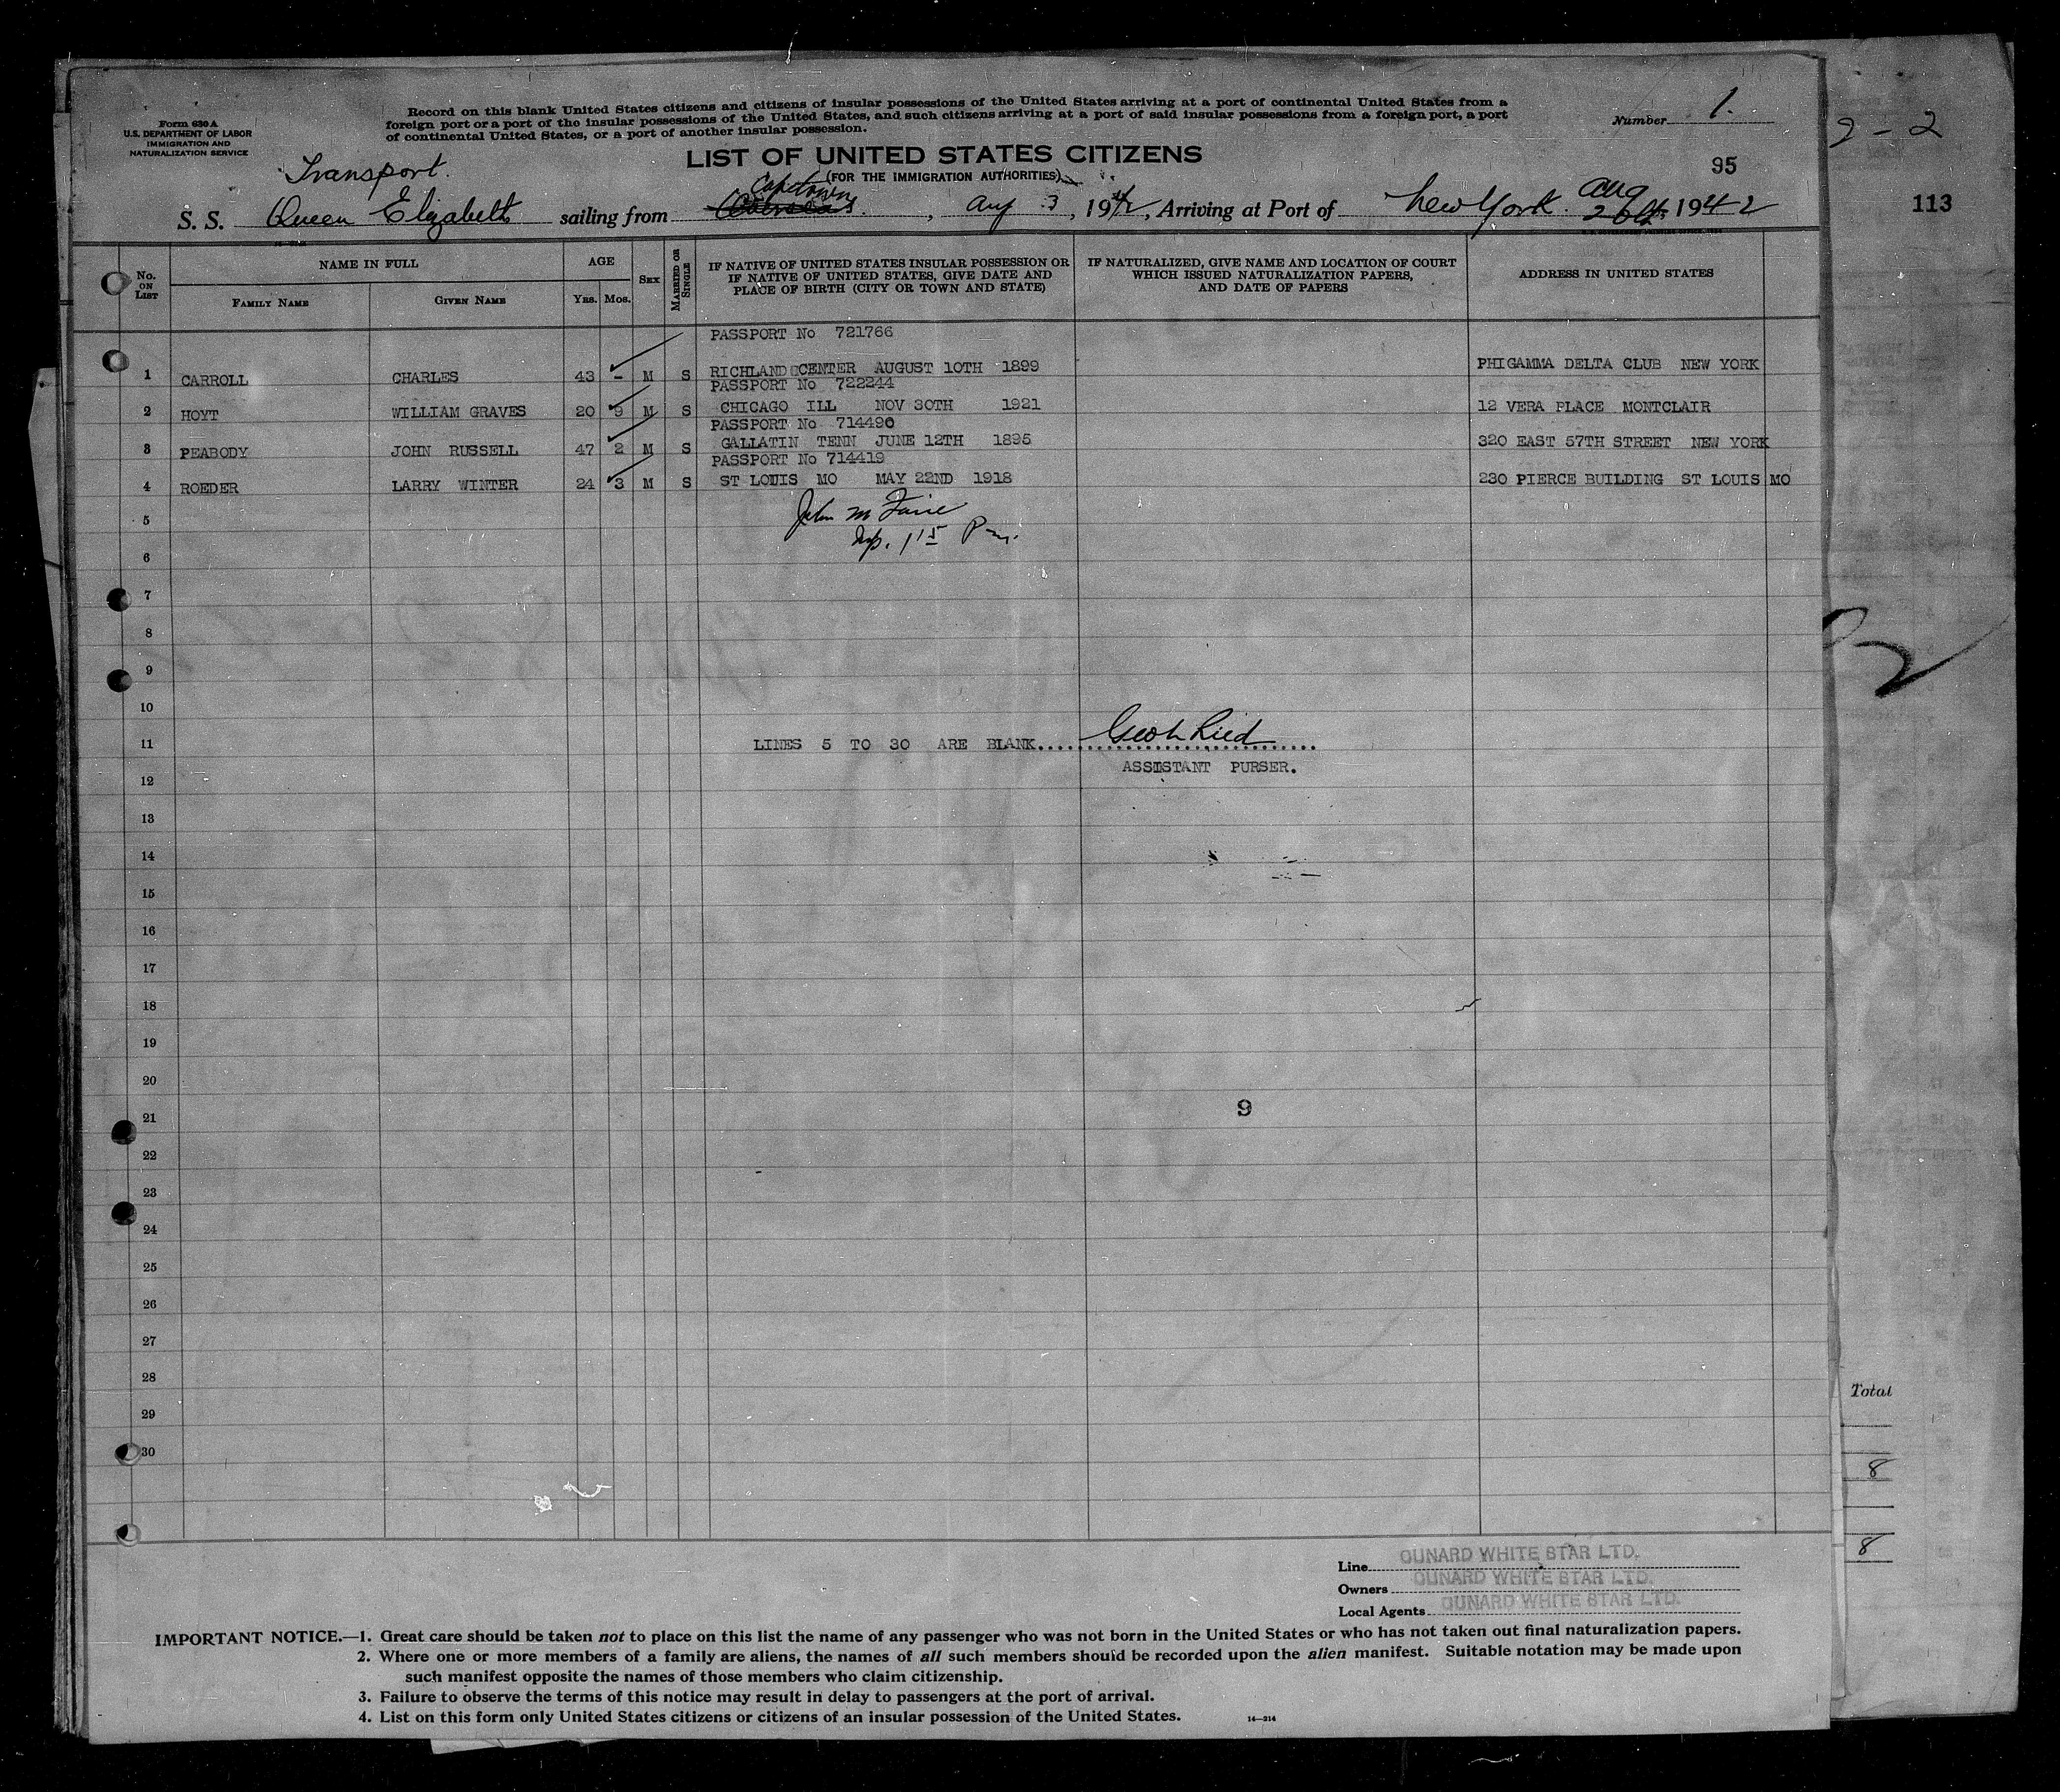 Form 630 A
U.S. DEPARTMENT OF LABOR
IMMIGRATION AND
NATURALIZATION SERVICE
Record on this blank United States citizens and citizens of insular possessions of the United States arriving at a port of continental United States from a
foreign port or a port of the insular possessions of the United States, and such citizens arriving at a port of said insular possessions from a foreign port, a port
of continental United States, or a port of another insular possession.
Number 1.
2 - 2
LIST OF UNITED STATES CITIZENS
(FOR THE IMMIGRATION AUTHORITIES)
95
113
Transport.
Capetown
S. S. Queen Elizabeth sailing from Overseas, Aug 3, 1942, Arriving at Port of New York. Aug 1942
No. ON LIST
NAME IN FULL
FAMILY NAME
GIVEN NAME
AGE
Yrs. Mos.
SEX
MARRIED OR SINGLE
IF NATIVE OF UNITED STATES INSULAR POSSESSION OR
IF NATIVE OF UNITED STATES, GIVE DATE AND
PLACE OF BIRTH (CITY OR TOWN AND STATE)
IF NATURALIZED, GIVE NAME AND LOCATION OF COURT
WHICH ISSUED NATURALIZATION PAPERS,
AND DATE OF PAPERS
ADDRESS IN UNITED STATES
PASSPORT No 721766
1 CARROLL CHARLES 43 - M S RICHLAND CENTER AUGUST 10TH 1899 PHIGAMMA DELTA CLUB NEW YORK
PASSPORT No 722244
2 HOYT WILLIAM GRAVES 20 9 M S CHICAGO ILL NOV 30TH 1921 12 VERA PLACE MONTCLAIR
PASSPORT No 714490
3 PEABODY JOHN RUSSELL 47 2 M S GALLATIN TENN JUNE 12TH 1895 320 EAST 57TH STREET NEW YORK
PASSPORT No 714419
4 ROEDER LARRY WINTER 24 3 M S ST LOUIS MO MAY 22ND 1918 230 PIERCE BUILDING ST LOUIS MO
5 John M
6 Insp. 1 15 Pm.
7
8
9
10
11 LINES 5 TO 30 ARE BLANK
12 ASSISTANT PURSER.
13
14
15
16
17
18
19
20
21 9
22
23
24
25
26
27
28
29
30
Total
8
8
Line CUNARD WHITE STAR LTD.
Owners CUNARD WHITE STAR LTD.
Local Agents CUNARD WHITE STAR LTD.
IMPORTANT NOTICE.—1. Great care should be taken not to place on this list the name of any passenger who was not born in the United States or who has not taken out final naturalization papers.
2. Where one or more members of a family are aliens, the names of all such members should be recorded upon the alien manifest. Suitable notation may be made upon
such manifest opposite the names of those members who claim citizenship.
3. Failure to observe the terms of this notice may result in delay to passengers at the port of arrival.
4. List on this form only United States citizens or citizens of an insular possession of the United States.
14—214